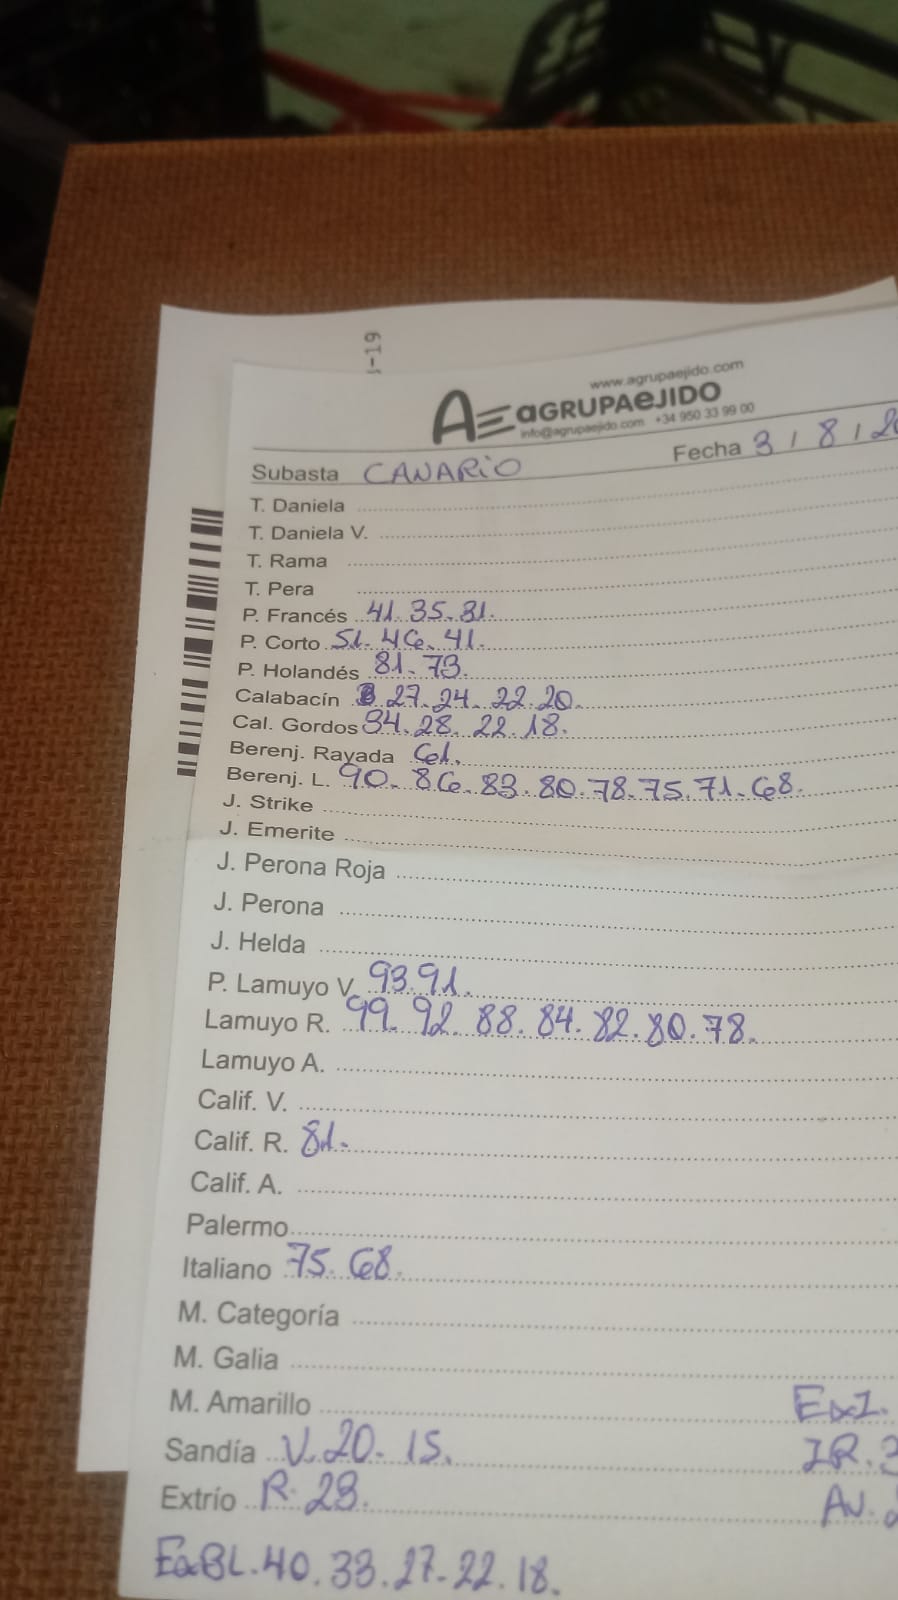 1-19
www.agrupaejido.com
AGRUPAEJIDO
info@agrupaejido.com +34 950 33 99 00
Subasta CANARIO Fecha 3 / 8 / 20
T. Daniela
T. Daniela V.
T. Rama
T. Pera
P. Francés 41. 35. 31.
P. Corto 51. 46. 41.
P. Holandés 81. 73.
Calabacín 27. 24. 22. 20.
Cal. Gordos 34. 28. 22. 18.
Berenj. Rayada 61.
Berenj. L. 90. 86. 83. 80. 78. 75. 71. 68.
J. Strike
J. Emerite
J. Perona Roja
J. Perona
J. Helda
P. Lamuyo V. 93. 91.
Lamuyo R. 99. 92. 88. 84. 82. 80. 78.
Lamuyo A.
Calif. V.
Calif. R. 81.
Calif. A.
Palermo
Italiano 75. 68.
M. Categoría
M. Galia
M. Amarillo ExI.
Sandía V. 20. 15. IR. 3
Extrío R. 23. AV.
ExBL. 40. 33. 27. 22. 18.